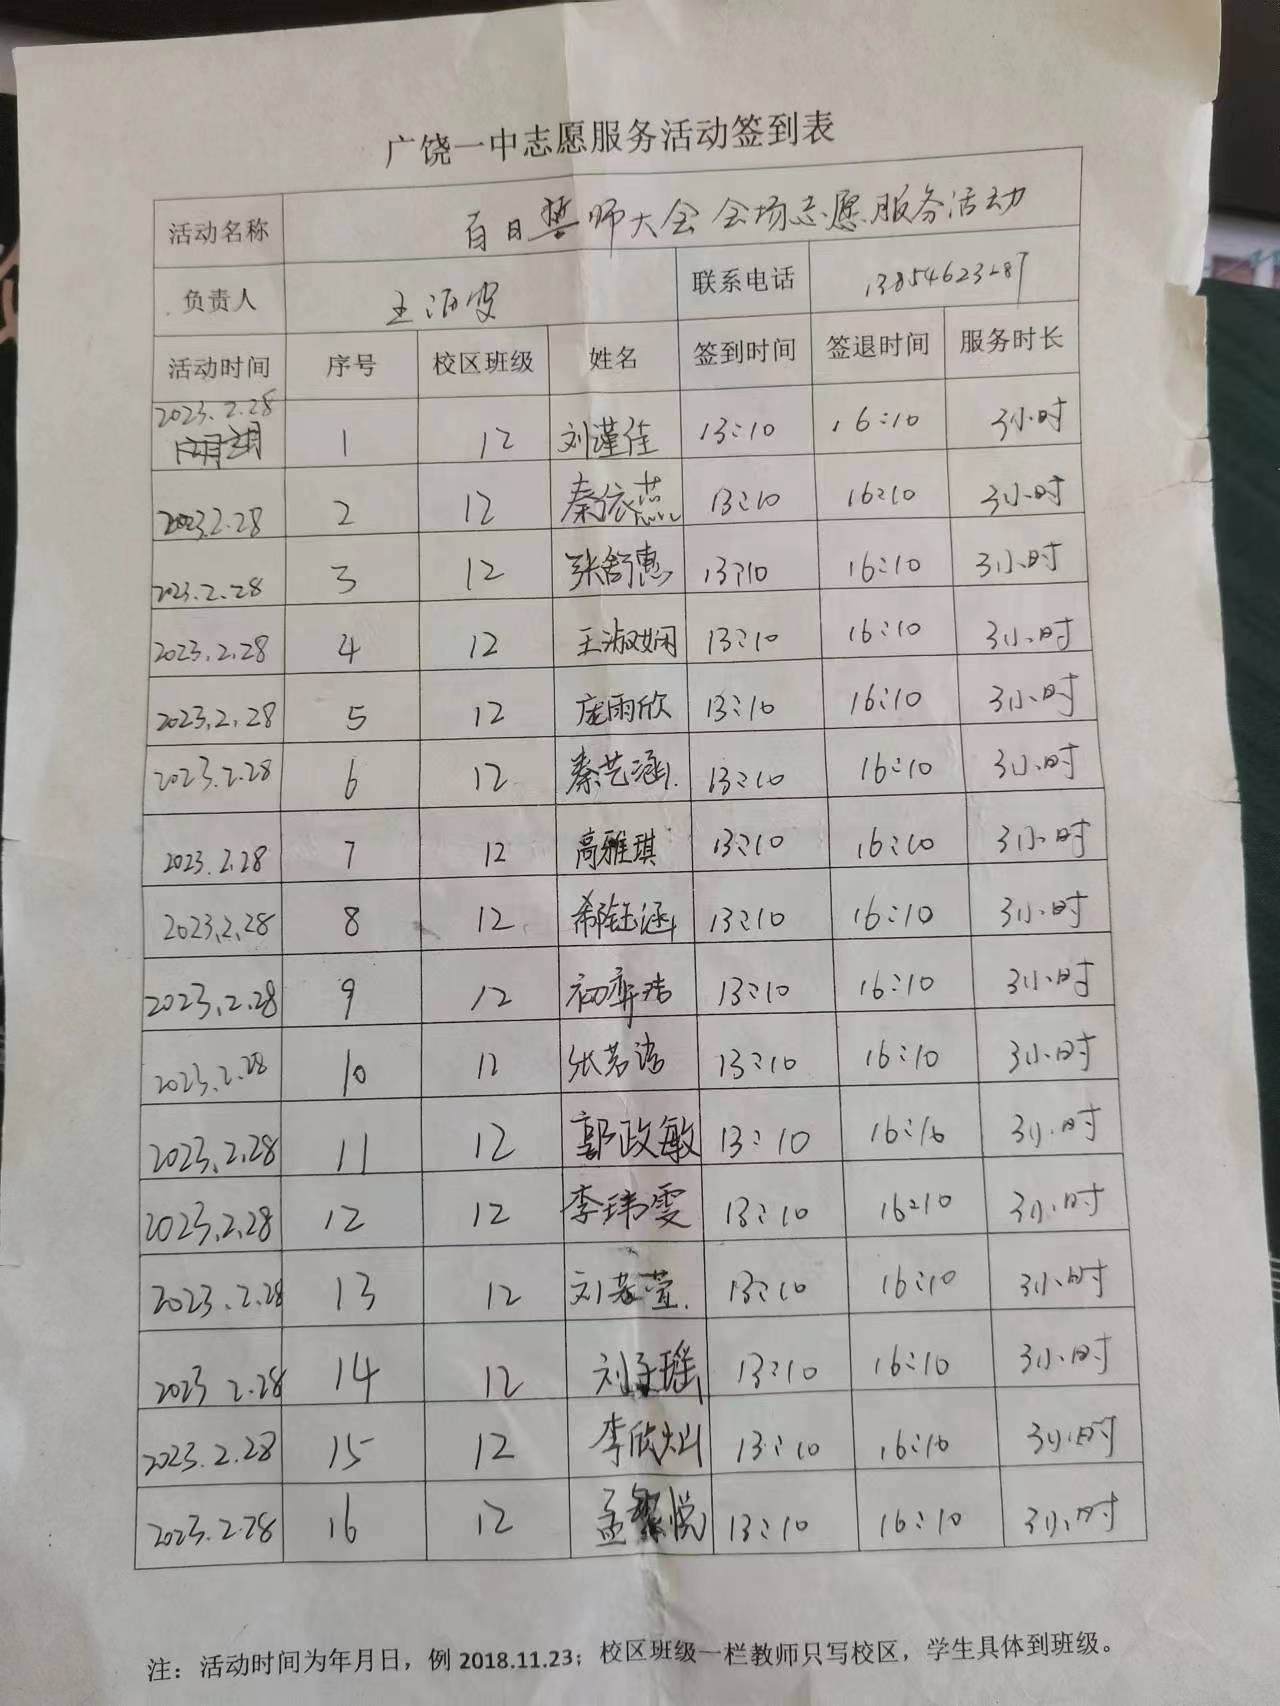 广饶一中志愿服务活动签到表
活动名称 百日誓师大会会场志愿服务活动
负责人 王 联系电话
活动时间 序号 校区班级 姓名 签到时间 签退时间 服务时长
2023.2.28 1 12 刘谨佳 13:10 16:10 3小时
2023.2.28 2 12 秦依燕 13:10 16:10 3小时
2023.2.28 3 12 张舒惠 13:10 16:10 3小时
2023.2.28 4 12 王淑娴 13:10 16:10 3小时
2023.2.28 5 12 庞雨欣 13:10 16:10 3小时
2023.2.28 6 12 秦艺涵 13:10 16:10 3小时
2023.2.28 7 12 高雅琪 13:10 16:10 3小时
2023.2.28 8 12 郗钰涵 13:10 16:10 3小时
2023.2.28 9 12 初 13:10 16:10 3小时
2023.2.28 10 12 张若诺 13:10 16:10 3小时
2023.2.28 11 12 郭政敏 13:10 16:10 3小时
2023.2.28 12 12 李玮雯 13:10 16:10 3小时
2023.2.28 13 12 刘若萱 13:10 16:10 3小时
2023 2.28 14 12 刘子瑶 13:10 16:10 3小时
2023.2.28 15 12 李欣灿 13:10 16:10 3小时
2023.2.28 16 12 孟繁悦 13:10 16:10 3小时
注：活动时间为年月日，例 2018.11.23；校区班级一栏教师只写校区，学生具体到班级。